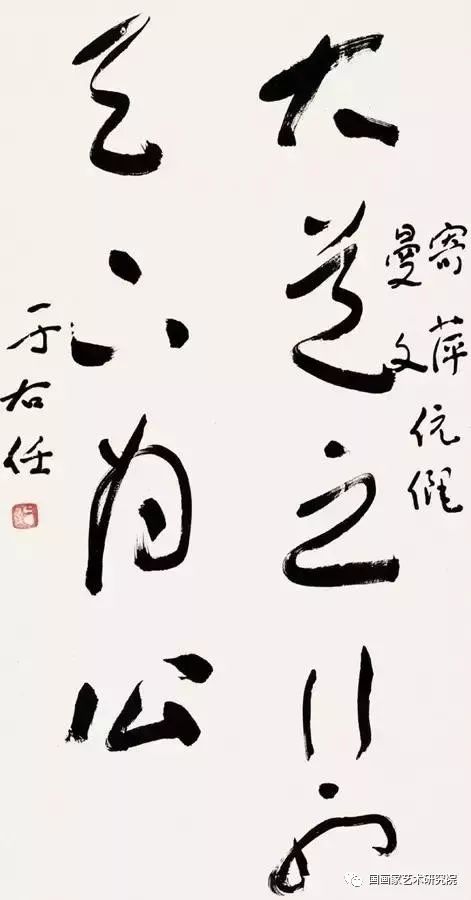 寄萍伉儷
曼文
大道之行也
天下為公
于右任
国画家艺术研究院